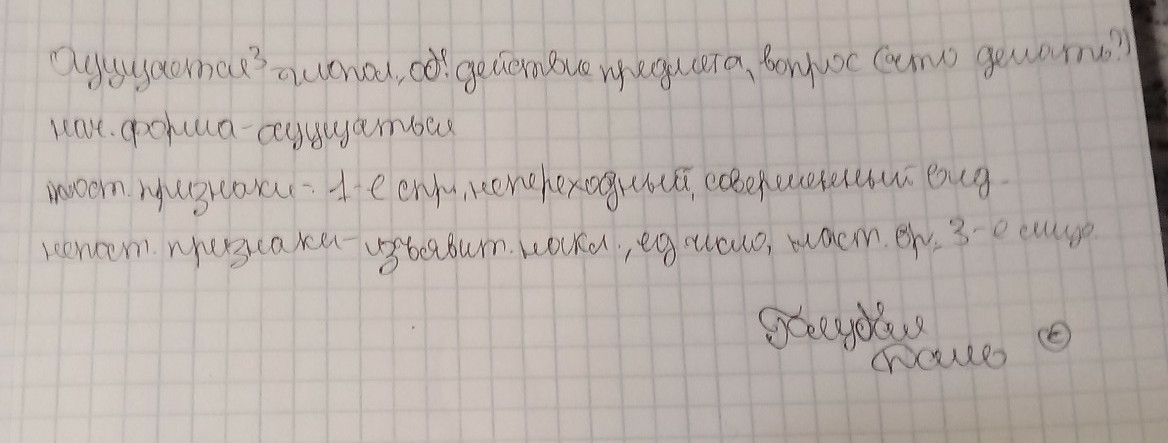 Ощущается³ глагол, об. действие предмета, вопрос (что делать?)
нач. форма - ощущаться
пост. признаки - 1-е спр., непереходный, совершенный вид.
непост. признаки - изъявит. накл., ед число, наст. вр. 3-е лицо.